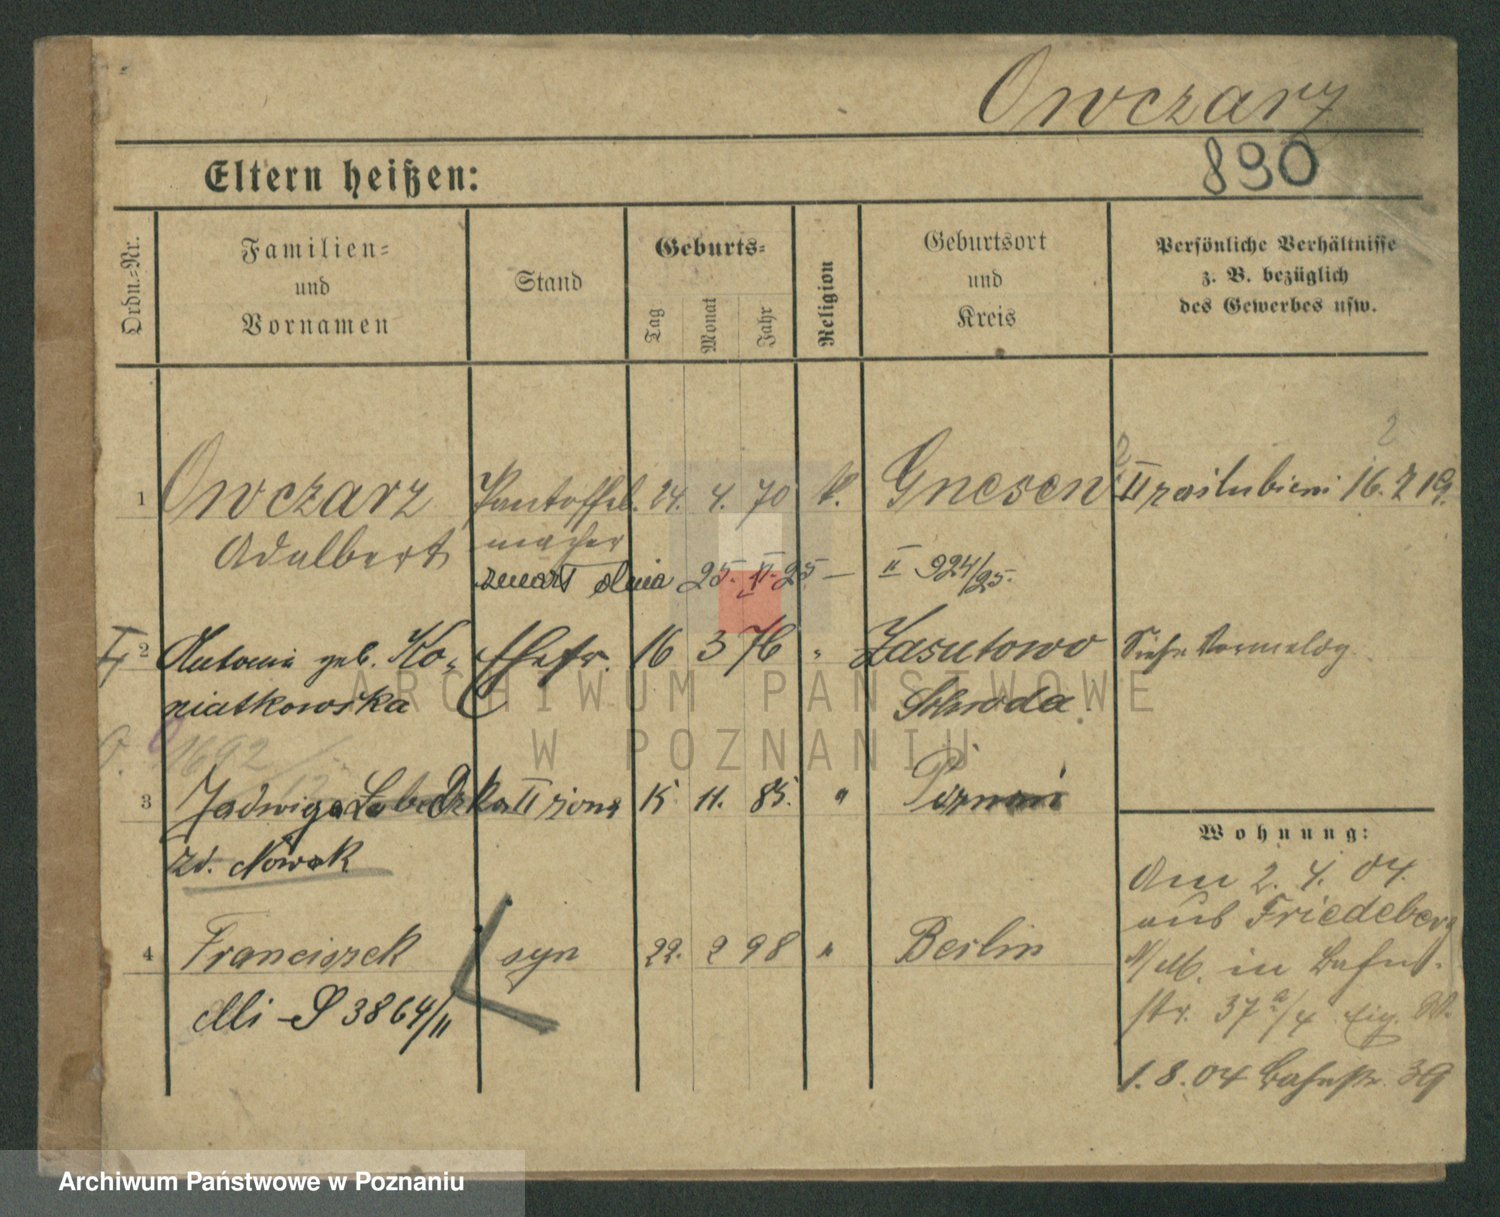 Owczarz
Eltern heißen:
890
Ordn.-Nr.
Familien-
und
Vornamen
Stand
Geburts-
Tag
Monat
Jahr
Religion
Geburtsort
und
Kreis
Persönliche Verhältnisse
z. B. bezüglich
des Gewerbes usw.
2
1 Owczarz Pantoffel- 24. 4. 70 k. Gnesen II zaślubieni 16.7 19.
Adalbert macher
zmarł dnia 25. XI. 25 — II 924/25.
I 2 Antonie geb. Ko- Ehefr. 16 3 76 " Zasutowo Siehe Vormeldg.
niatkowska Schroda
1692
3 Jadwiga II żona 15 11. 85. " Poznań
zd. Nowak
Wohnung:
Am 2. 4. 04.
aus Friedeberg
N/M. in Bahn-
str. 37a/4 Eig. W.
1.8.04 Bahnstr. 39
4 Franciszek syn 22. 2 98 " Berlin
3864/II
ARCHIWUM PAŃSTWOWE
W POZNANIU
Archiwum Państwowe w Poznaniu